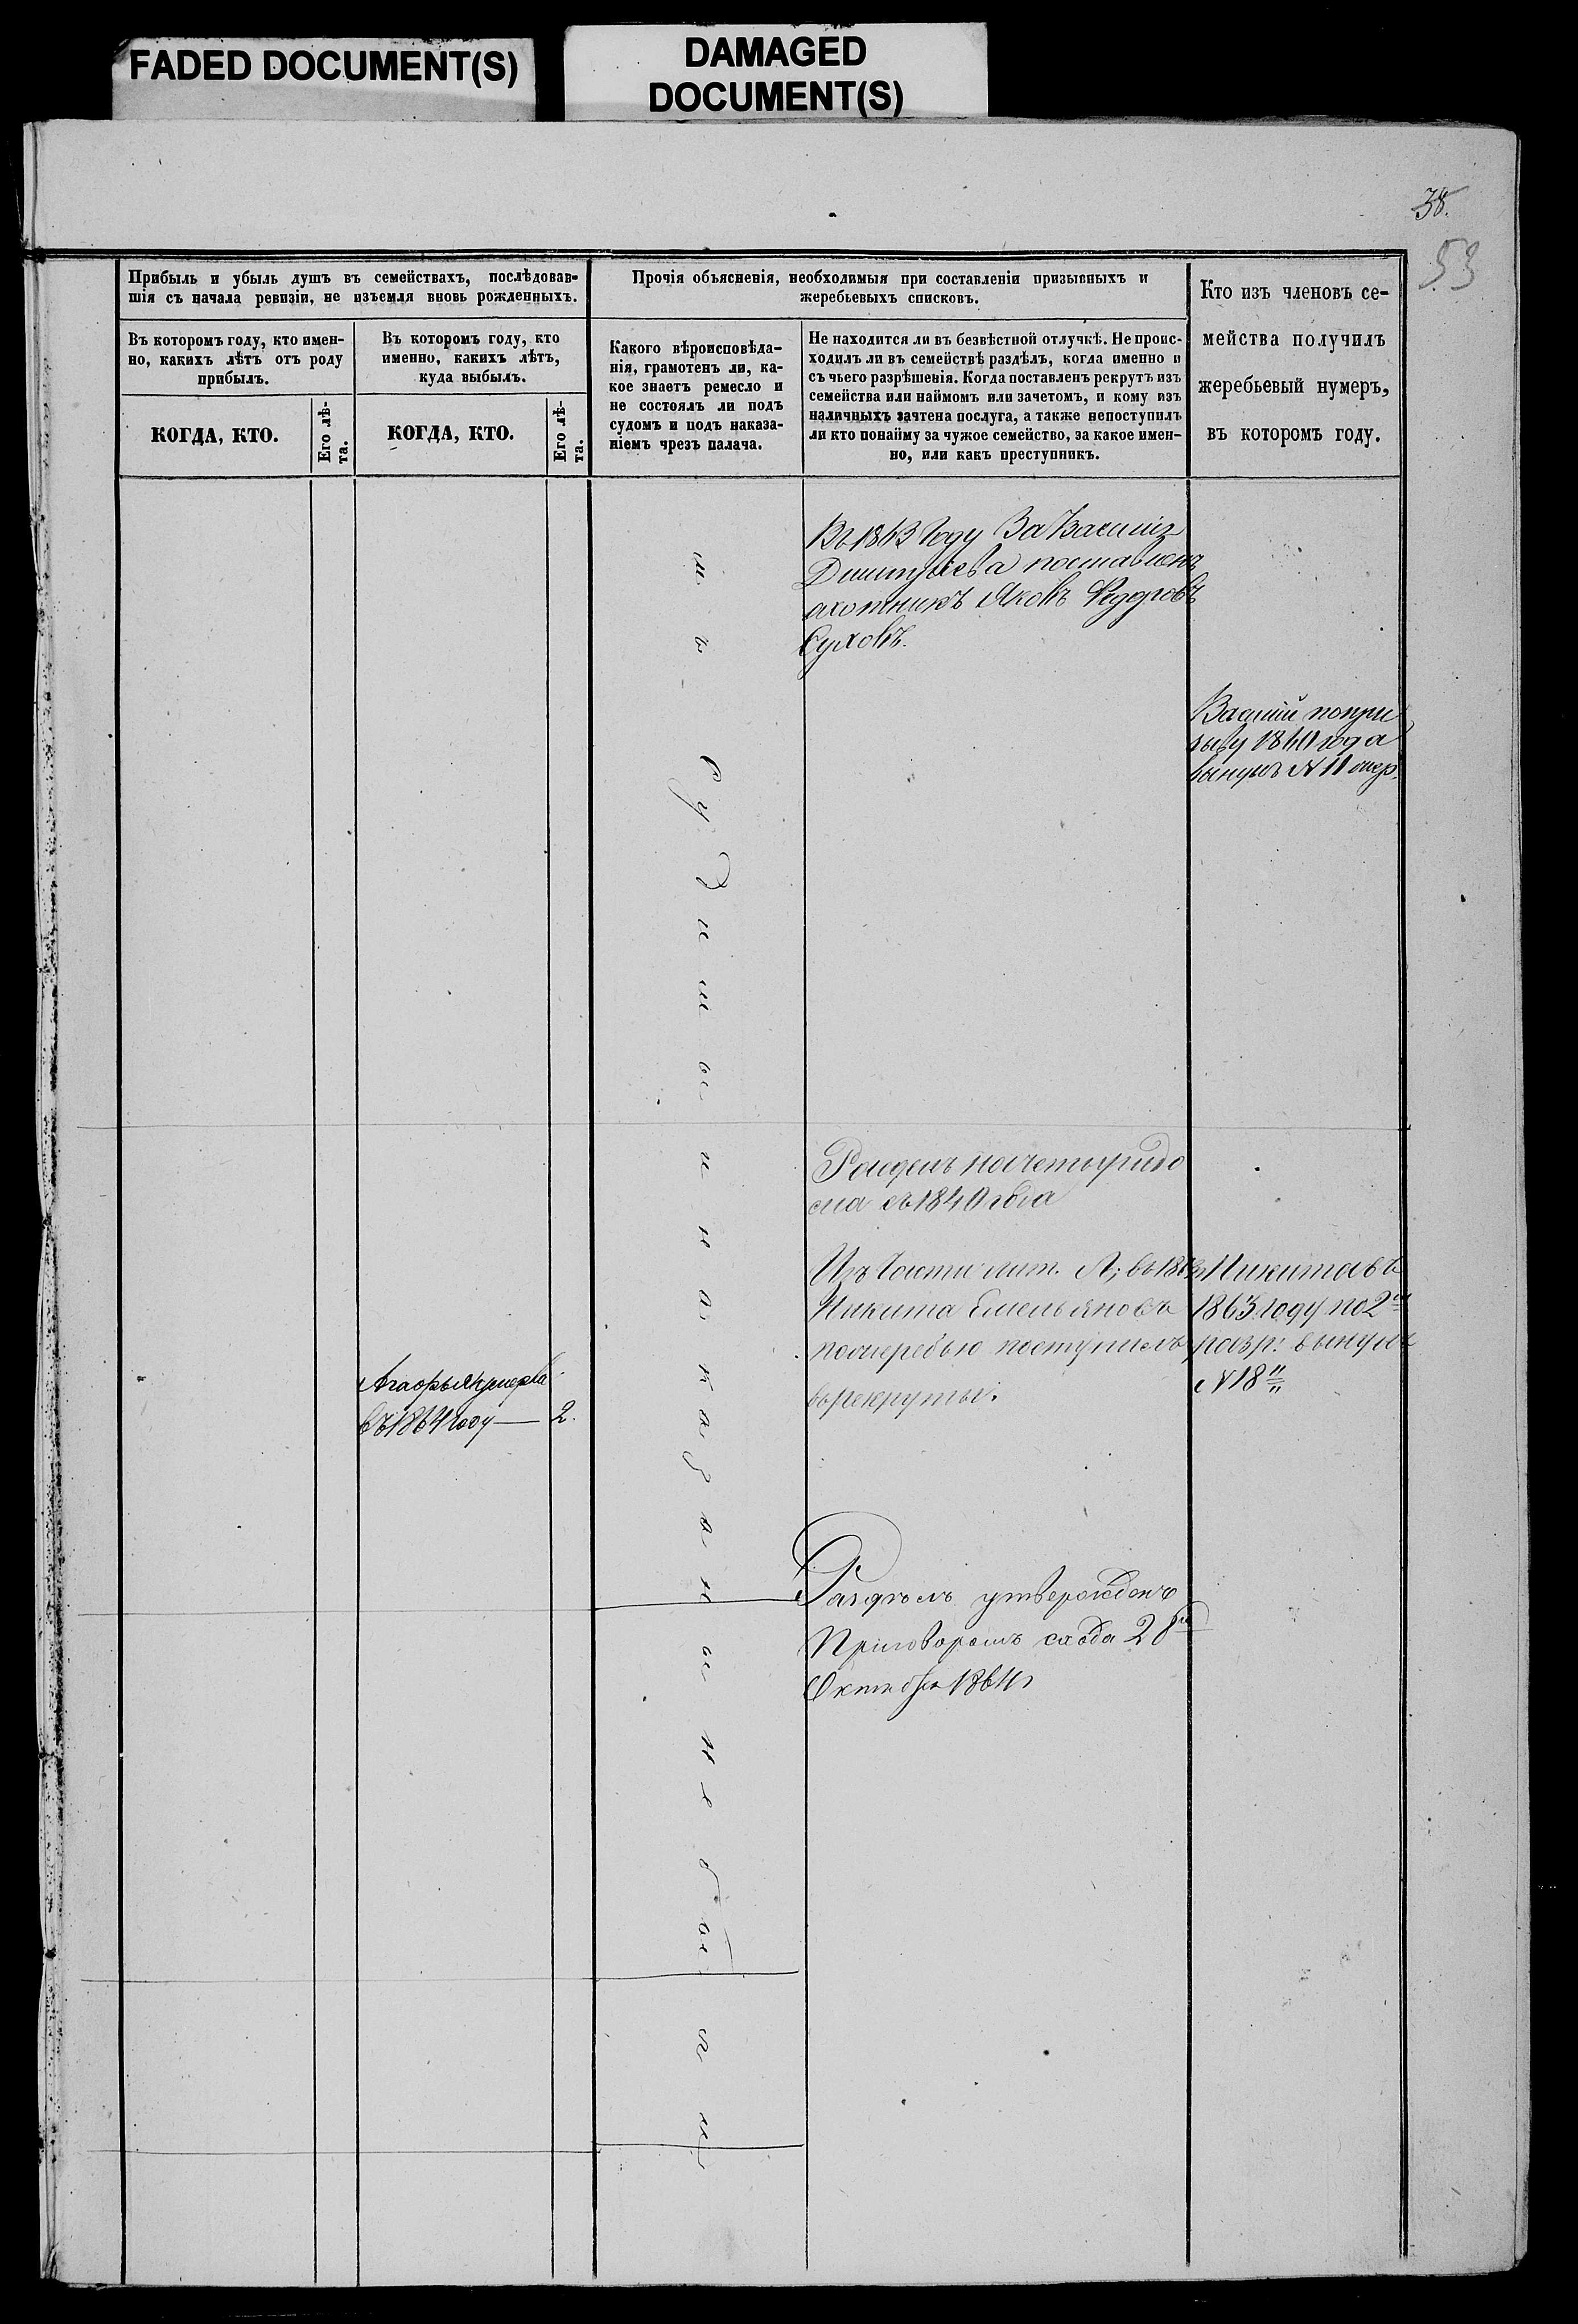 FADED DOCUMENT(S)
DAMAGED
DOCUMENT(S)
38.
53
Прибыль и убыль душъ въ семействахъ, послѣдовав-
шія съ начала ревизіи, не изъемля вновь рожденныхъ.
Въ которомъ году, кто имен-
но, какихъ лѣтъ отъ роду
прибылъ.
КОГДА, КТО.
Его лѣ-
та.
Въ которомъ году, кто
именно, какихъ лѣтъ,
куда выбылъ.
КОГДА, КТО.
Его лѣ-
та.
Прочія объясненія, необходимыя при составленіи призывныхъ и
жеребьевыхъ списковъ.
Какого вѣроисповѣда-
нія, грамотенъ ли, ка-
кое знаетъ ремесло и
не состоялъ ли подъ
судомъ и подъ наказа-
ніемъ чрезъ палача.
Не находится ли въ безвѣстной отлучкѣ. Не проис-
ходилъ ли въ семействѣ раздѣлъ, когда именно и
съ чьего разрѣшенія. Когда поставленъ рекрутъ изъ
семейства или наймомъ или зачетомъ, и кому изъ
наличныхъ зачтена послуга, а также непоступилъ
ли кто понайму за чужое семейство, за какое имен-
но, или какъ преступникъ.
Кто изъ членовъ се-
мейства получилъ
жеребьевый нумеръ,
въ которомъ году.
Въ 1843 году За Василія
Дмитріева поставленъ
охотникъ Яковъ Федоровъ
Суховъ.
Василій попри
зыву 1840 года
вынулъ N 11
Судимы и наказаны не бы
ли
Разделъ на четыре
съ 1840 года
Изъ Части лит. А; въ
Никита Емельяновъ
поочередью поступилъ
въ рекруты.
Никита въ
1863 году по 2й
разр: вынулъ
N 18
умерла
въ 1864 году — 2.
Раздѣлъ утвержденъ
Приговоромъ схода 28го
Октября 1864 г